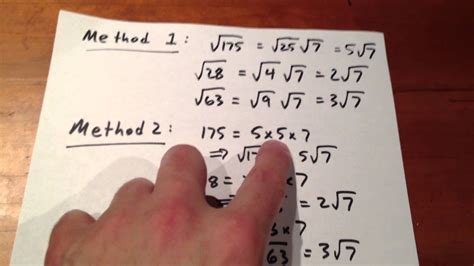 Method 1: √175 = √25 √7 = 5√7
√28 = √4 √7 = 2√7
√63 = √9 √7 = 3√7
Method 2: 175 = 5×5×7
⇒ √17 5√7
8 = ×7
= 2√7
3×7
63 = 3√7